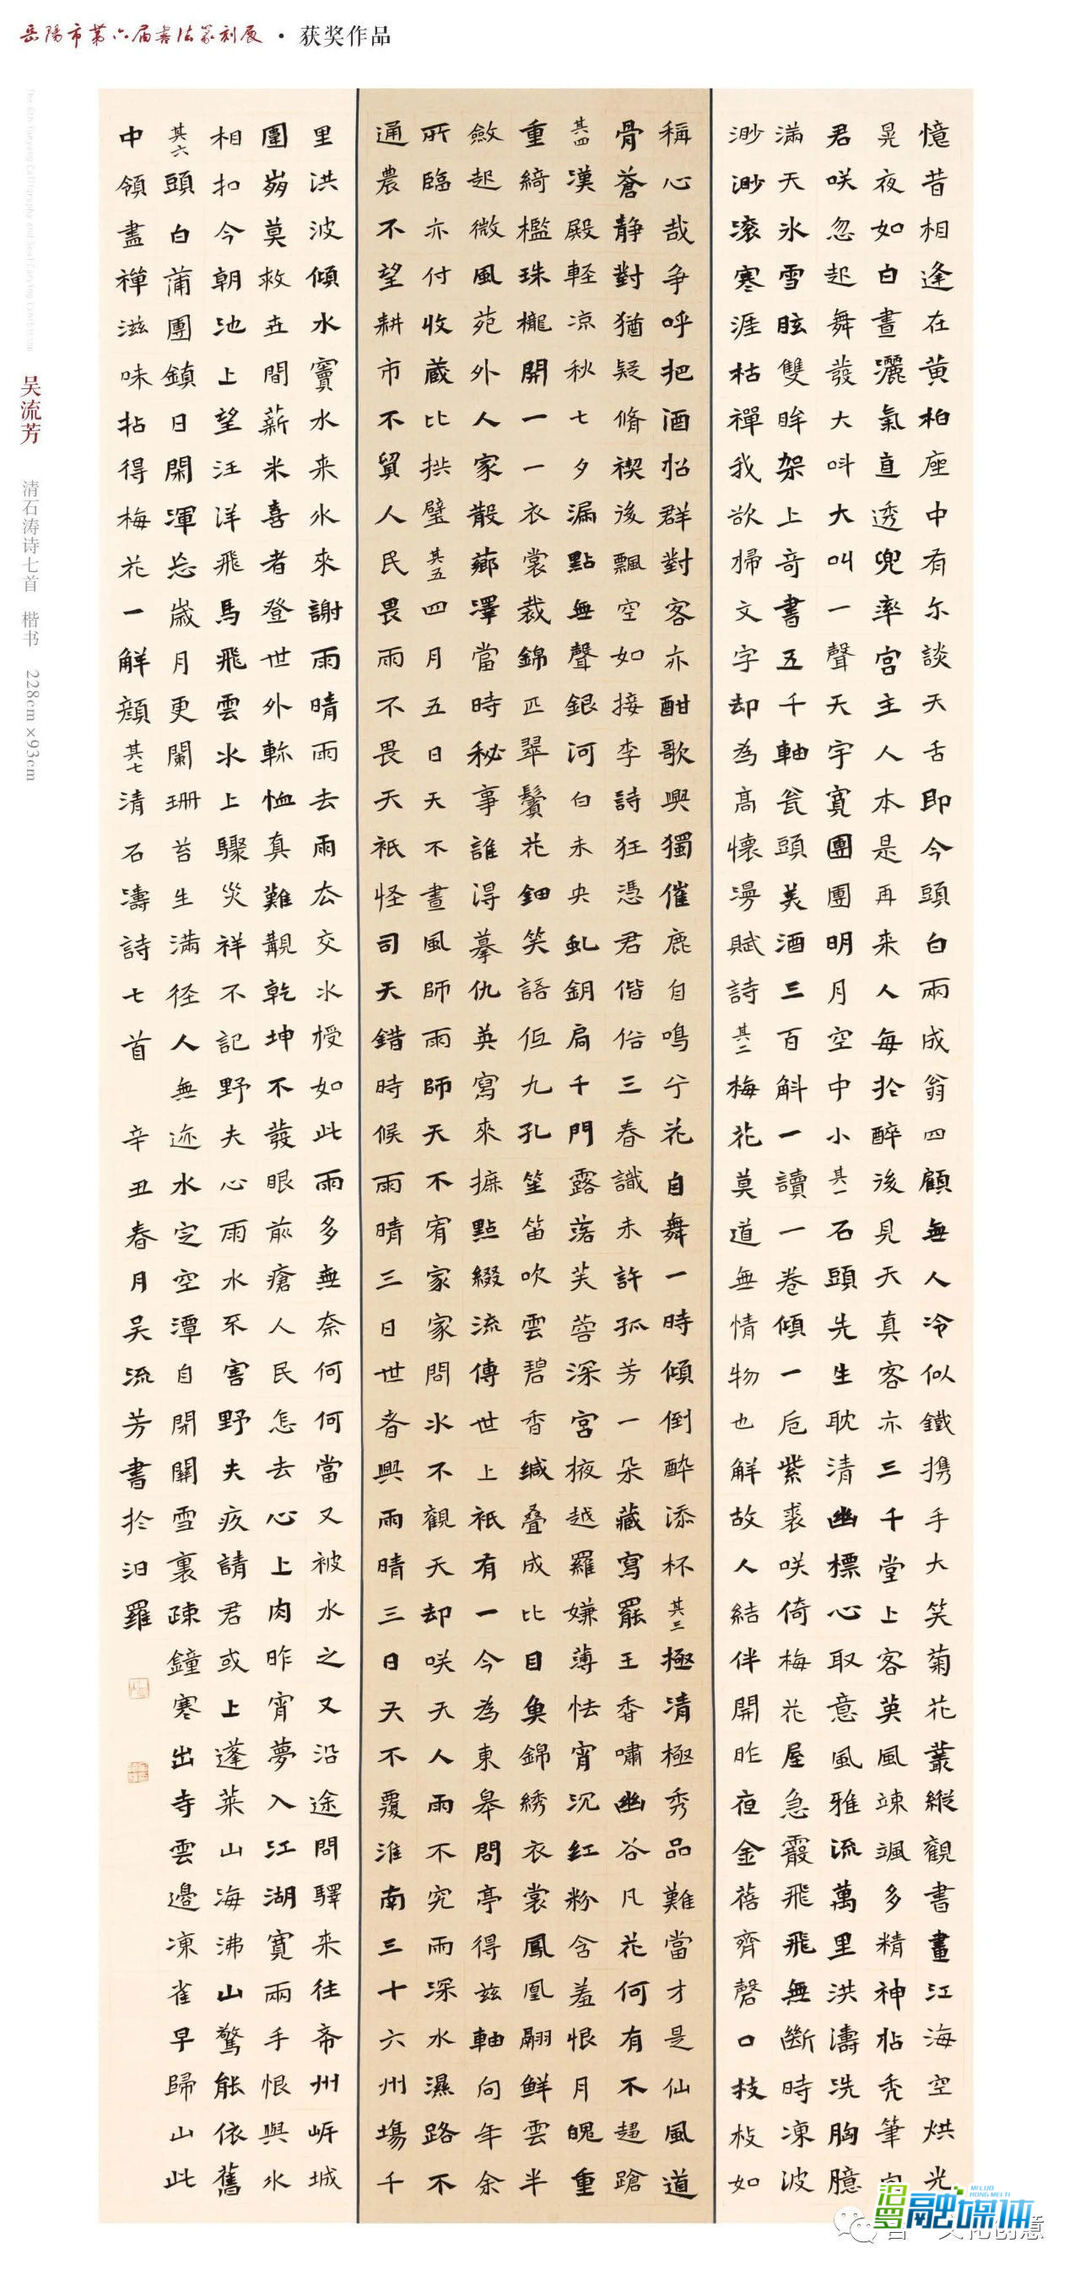 岳陽市第六届書法篆刻展 · 获奖作品
The 6th Yueyang Calligraphy and Seal Carving Exhibition
吴流芳 清石涛诗七首 楷书 228cm×93cm
憶昔相逢在黄柏座中有尔談天舌即今頭白兩成翁四顧無人冷似鐵携手大笑菊花叢縱觀書畫江海空烘光
晃夜如白晝灑氣直透兜率宮主人本是再来人每於醉後見天真客亦三千堂上客英風竦颯多精神帖秃筆
君咲忽起舞發大呌大叫一聲天宇寬團團明月空中小其一石頭先生耽清幽標心取意風雅流萬里洪濤洗胸臆
滿天氷雪眩雙眸架上奇書五千軸瓮頭美酒三百斛一讀一卷傾一卮紫裘咲倚梅花屋急霰飛飛無斷時凍波
渺渺滚寒涯枯禪我欲歸文字却為高懷漫賦詩其二梅花莫道無情物也解故人結伴開昨夜金蓓齊磬口枝枝如
稱心哉争呼把酒怡群對客亦酣歌興獨催鹿自鳴兮花自舞一時傾倒醉添杯其三極清極秀品難當才是仙風道
骨蒼静對猶疑脩禊後飄空如接李詩狂憑君偕俗三春識未許孤芳一朵藏寫罷王香嘯幽谷凡花何有不超蹌
其四漢殿輕凉秋七夕漏點無聲銀河白未央虬鈅扃千門露落芙蓉深宮掖越羅嫌薄怯宵沉红粉含羞恨月魄重
重綺檻珠櫳開一一衣裳裁錦匹翠鬢花鈿笑語伍九孔笙笛吹雲碧香緘叠成比目奐錦綉衣裳鳳凰翮鮮雲半
斂起微風苑外人家散薌澤當時秘事誰得摹仇英寫來摭點綴流傳世上衹有一今為東皋問亭得兹軸向年余
所臨亦付收蔵比拱璧其五四月五日天不晝風師雨師天不宥家家問水不觀天却咲天人雨不究雨深水濕路不
通農不望耕市不貿人民畏雨不畏天衹怪司天錯時候雨晴三日世眷興雨晴三日天不覆淮南三十六州場千
里洪波傾水竇水来水來謝雨晴雨去雨厺交水授如此雨多無奈何何當又被水之又沿途問驛来往斋州岍城
圍崩莫救卋間薪米喜者登世外斬恤真難覯乾坤不發眼前瘡人民怎去心上肉昨宵夢入江湖寬兩手恨與水
相扣今朝池上望汪洋飛馬飛雲水上驟災祥不記野夫心雨水不害野夫疚請君或上蓬莱山海沸山驚能依舊
其六頭白蒲團鎮日閑渾忘歲月更闌珊苔生滿径人無迹水定空潭自閉關雪裏疎鐘寒出寺雲邊凍雀早歸山此
中領盡禪滋味拈得梅花一解顔其七清石濤詩七首 辛丑春月吴流芳書於汨羅
汨罗融媒体
MI LUO RONG MEI TI
文化创意